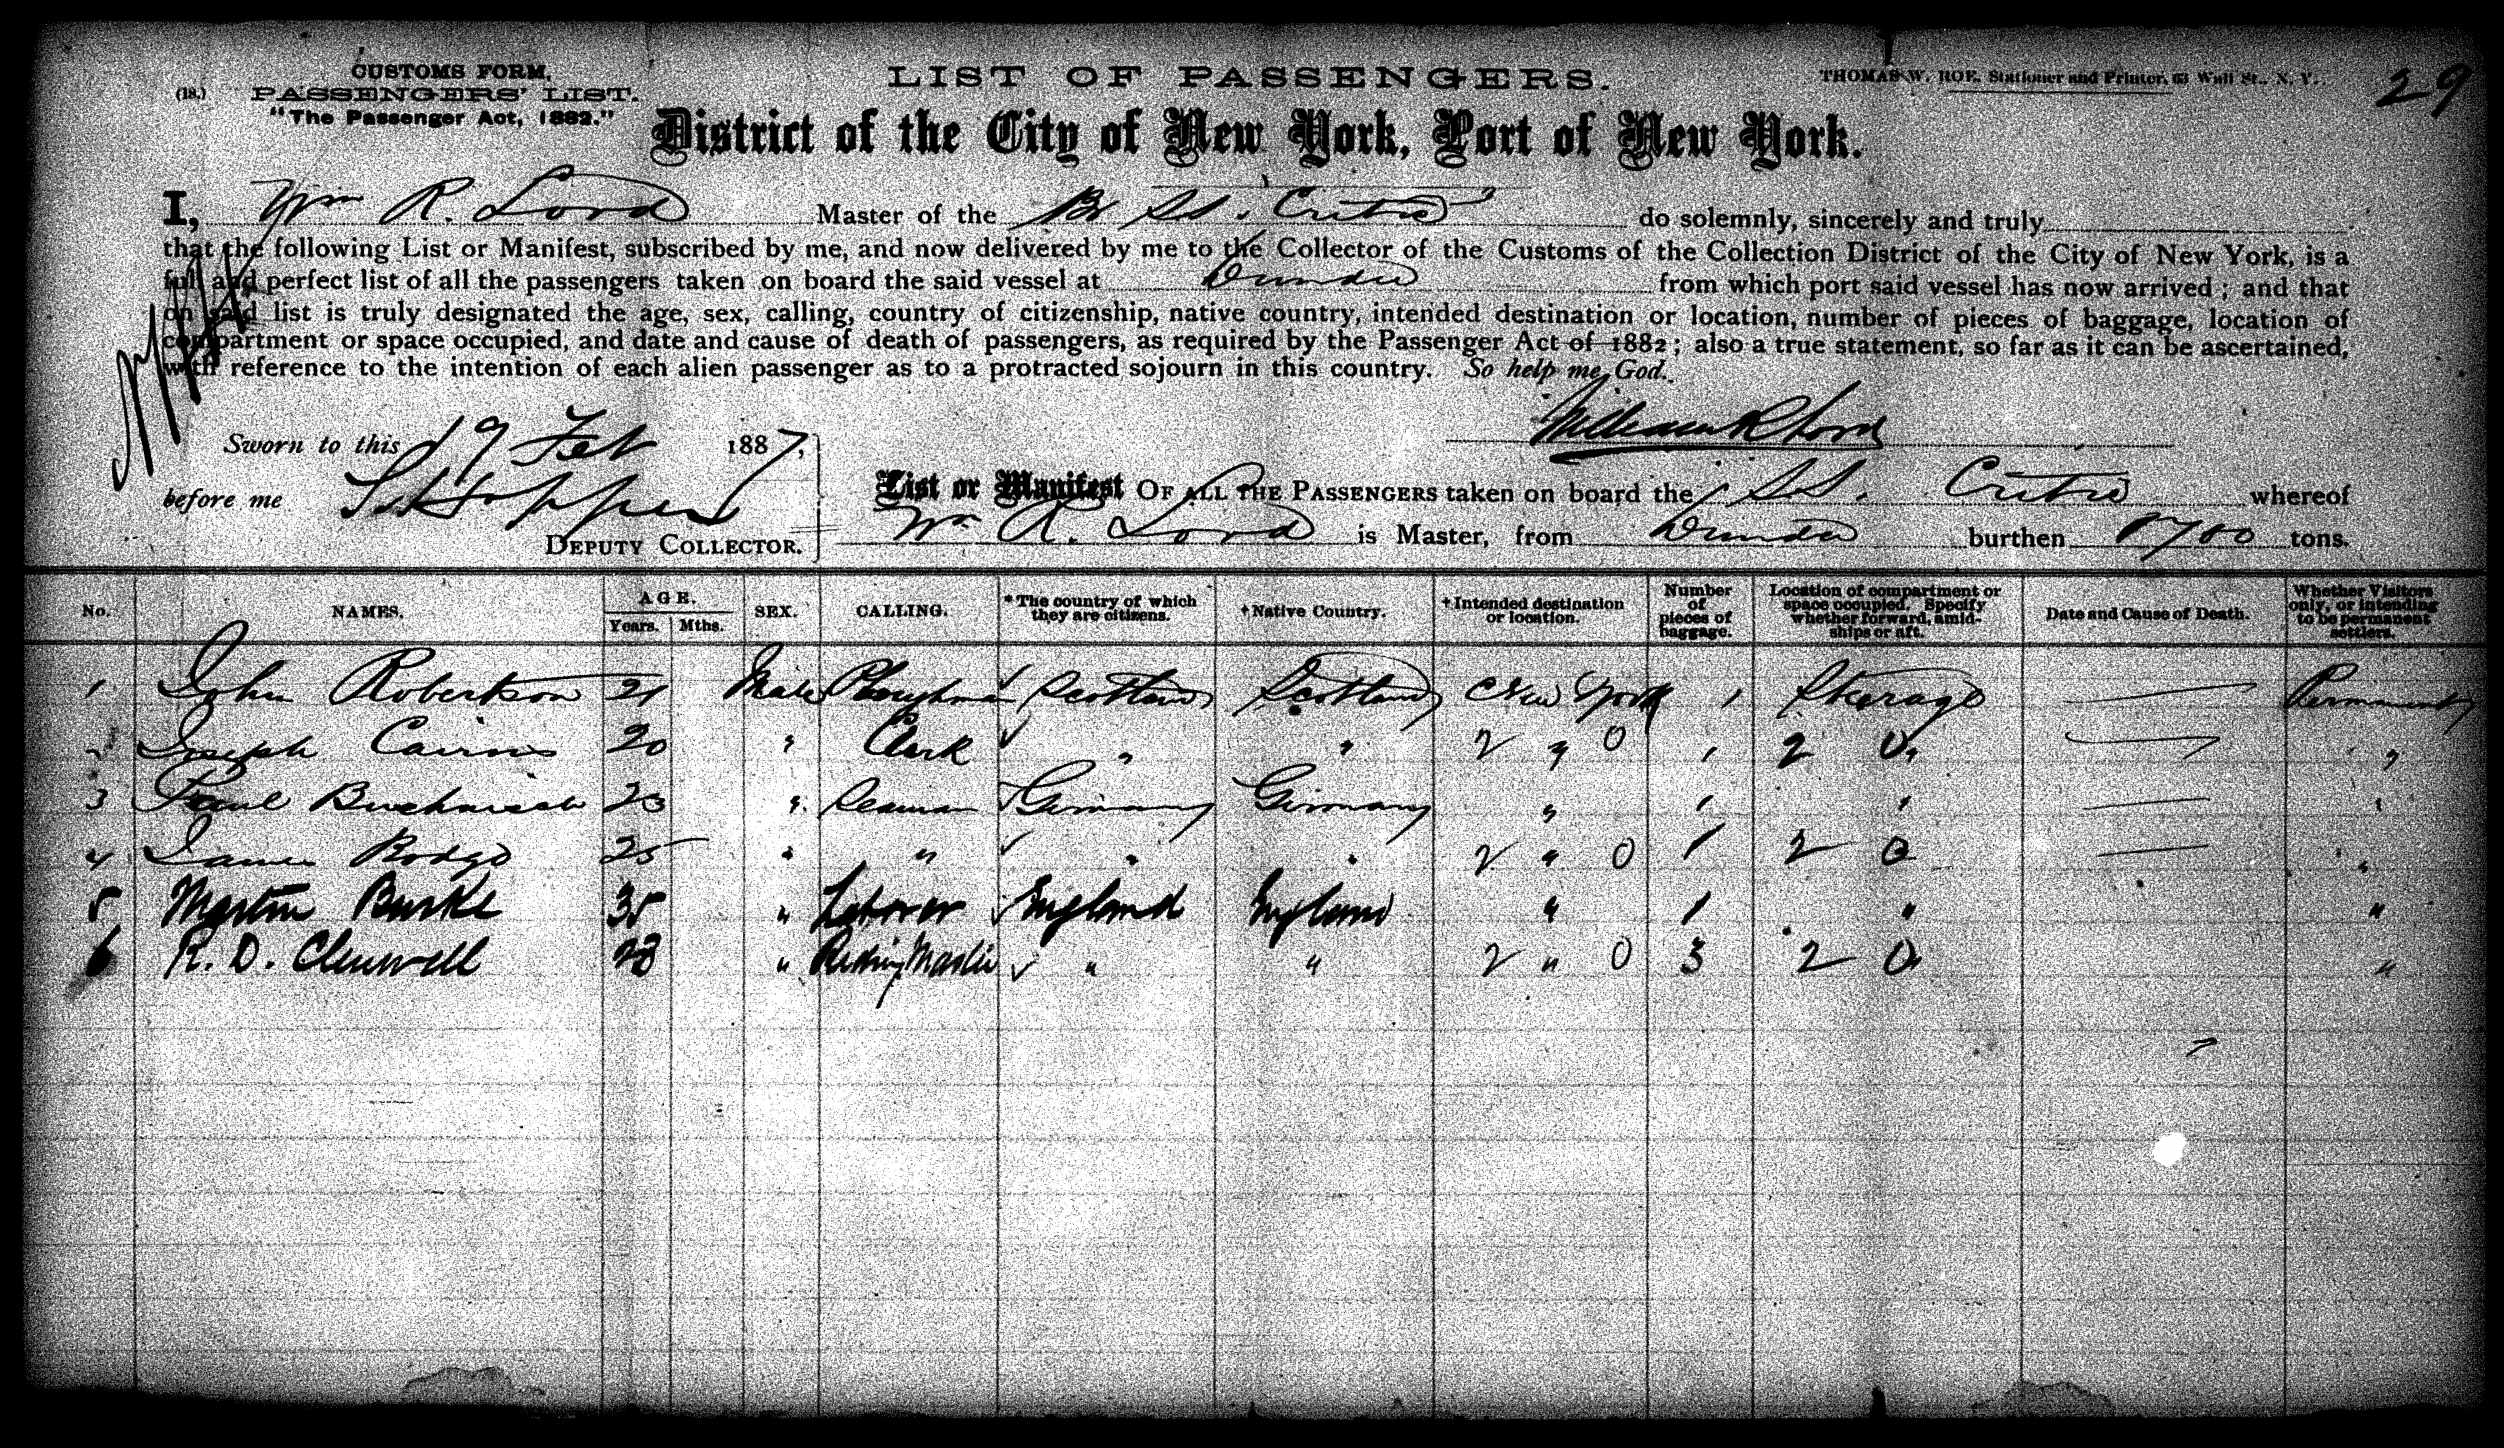 CUSTOMS FORM.
(18.) PASSENGERS' LIST.
"The Passenger Act, 1882."
LIST OF PASSENGERS.
THOMAS W. ROE, Stationer and Printer, 63 Wall St., N. Y.
29
District of the City of New York, Port of New York.
I, Wm R. Lord Master of the Br SS. Critic do solemnly, sincerely and truly
that the following List or Manifest, subscribed by me, and now delivered by me to the Collector of the Customs of the Collection District of the City of New York, is a
full and perfect list of all the passengers taken on board the said vessel at Dundee from which port said vessel has now arrived; and that
on said list is truly designated the age, sex, calling, country of citizenship, native country, intended destination or location, number of pieces of baggage, location of
compartment or space occupied, and date and cause of death of passengers, as required by the Passenger Act of 1882; also a true statement, so far as it can be ascertained,
with reference to the intention of each alien passenger as to a protracted sojourn in this country. So help me God.
William R Lord
Sworn to this 19 Feb 1887,
before me
DEPUTY COLLECTOR.
List or Manifest OF ALL THE PASSENGERS taken on board the SS. Critic whereof
Wm R. Lord is Master, from Dundee burthen 1700 tons.
No. NAMES. AGE. Years. Mths. SEX. CALLING. *The country of which they are citizens. †Native Country. †Intended destination or location. Number of pieces of baggage. Location of compartment or space occupied. Specify whether forward, amidships or aft. Date and Cause of Death. Whether Visitors only, or intending to be permanent settlers.
1 John Robertson 21 Male Ploughman Scotland Scotland New York 1 Steerage Permanently
2 Joseph Cairns 20 " Clerk " " 2 " 0 1 2 0 "
3 Paul 23 " Seaman Germany Germany " 1 " "
4 James Rodge 25 " " " " 2 " 0 1 2 0 "
5 Martin Burke 35 " Laborer England England " 1 " "
6 R. D. Clenwell 28 " Riding Master " " 2 " 0 3 2 0 "